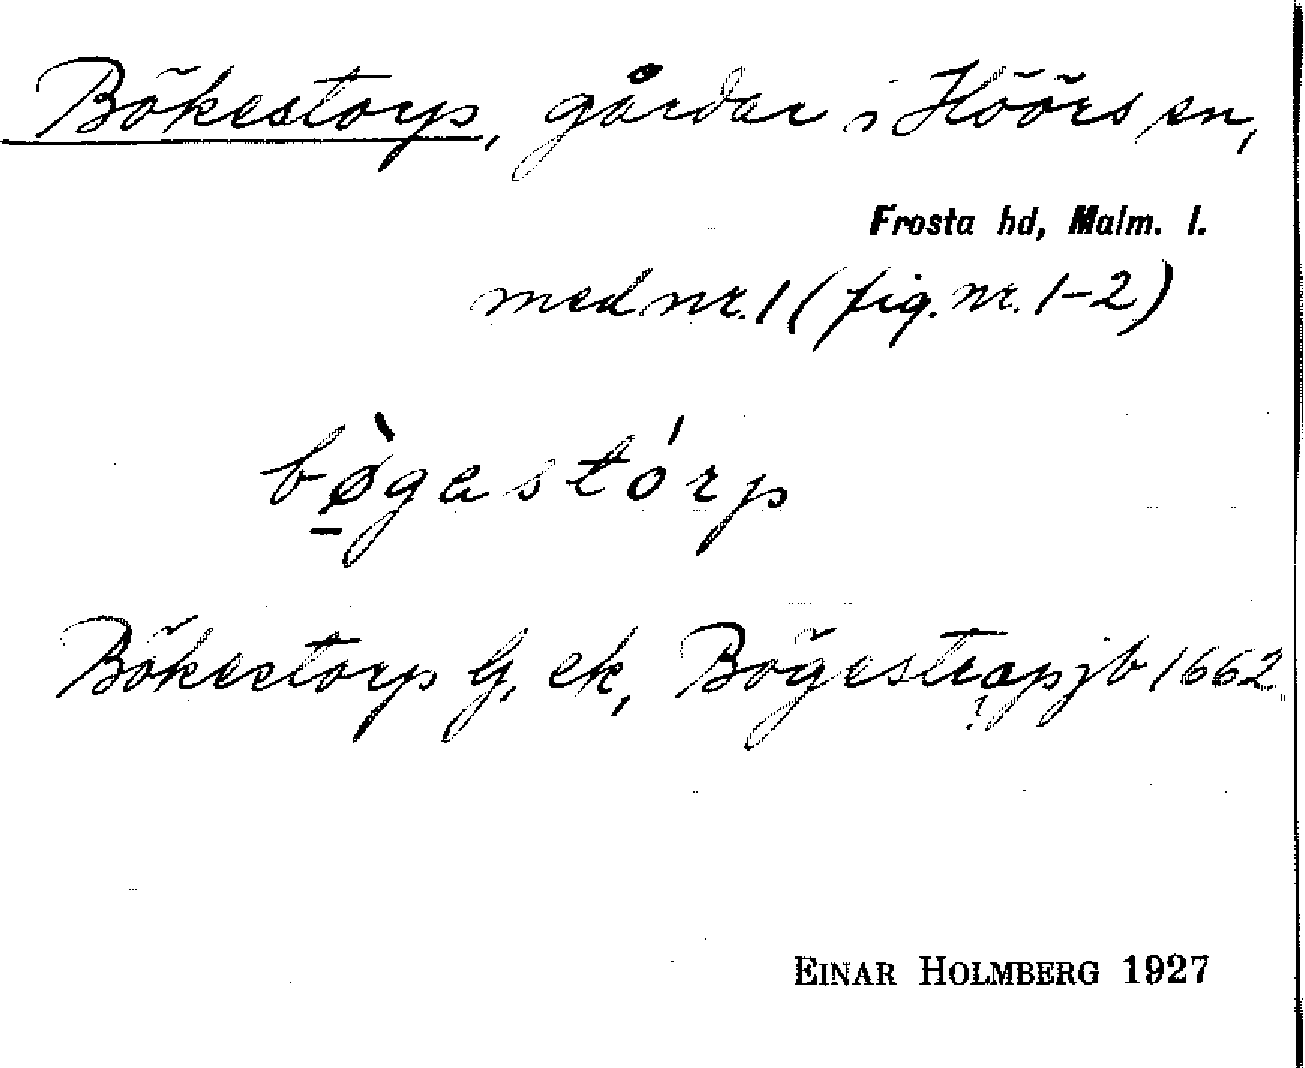 Bökestorp, gårdar i Höörs sn,
Frosta hd, Malm. l.
med nr. 1 (fig. nr. 1-2)
bø̠̀gastórp
Bökestorp G. ek, Bögestrap jb 1662
?
EINAR HOLMBERG 1927